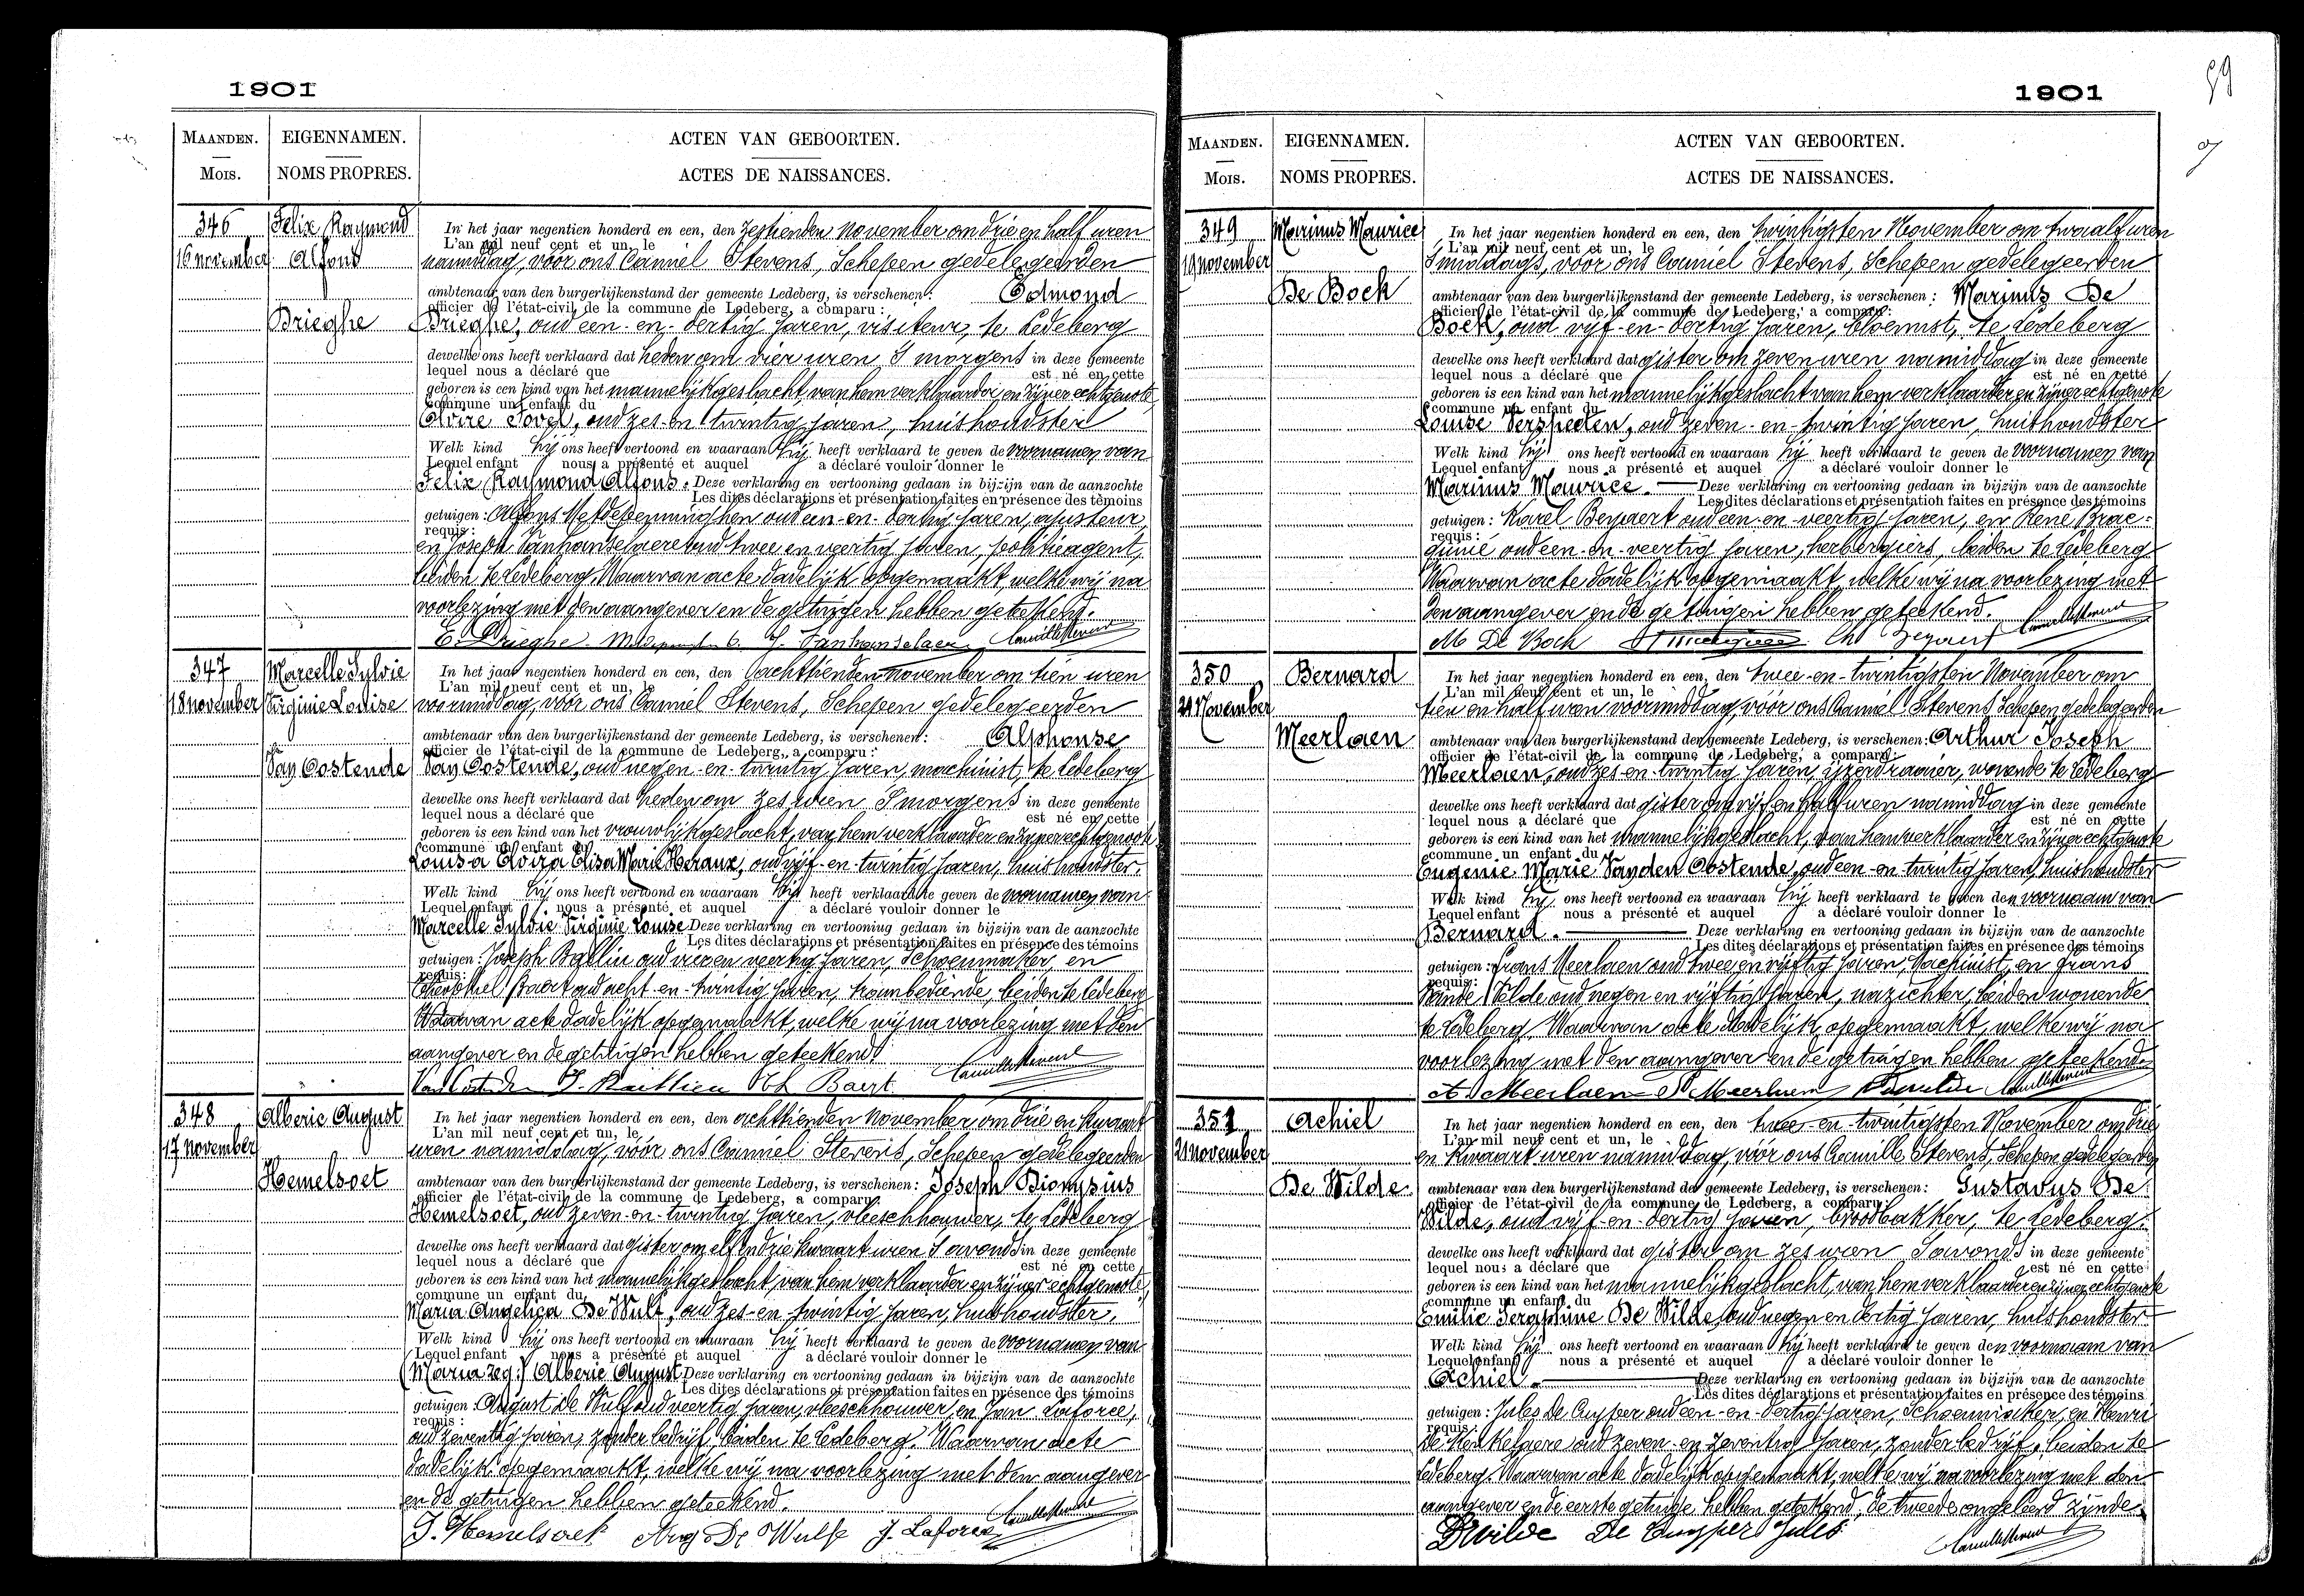 1901
MAANDEN.
MOIS.
EIGENNAMEN.
NOMS PROPRES.
ACTEN VAN GEBOORTEN.
ACTES DE NAISSANCES.
346
16 november
Felix Raymond
Alfons
Drieghe
In het jaar negentien honderd en een, den zestienden November om drie en half uren
L'an mil neuf cent et un, le
namiddag, vóór ons Camiel Stevens, Schepen gedelegeerden
ambtenaar van den burgerlijkenstand der gemeente Ledeberg, is verschenen: Edmond
officier de l'état-civil de la commune de Ledeberg, a comparu:
Drieghe, oud een-en-dertig jaren, visiteur, te Ledeberg
dewelke ons heeft verklaard dat heden om vier uren 's morgens in deze gemeente
lequel nous a déclaré que est né en cette
geboren is een kind van het mannelijk geslacht, van hem verklaarder en zijner echtgenote,
commune un enfant du
Elvire Tovel, oud zes-en-twintig jaren, huishoudster
Welk kind hij ons heeft vertoond en waaraan hij heeft verklaard te geven de voornamen van
Lequel enfant nous a présenté et auquel a déclaré vouloir donner le
Felix Raymond Alfons. Deze verklaring en vertooning gedaan in bijzijn van de aanzochte
Les dites déclarations et présentation faites en présence des témoins
getuigen: Alfons Metdepenninghen oud een-en-dertig jaren, ajusteur,
requis:
en Joseph Vanhanselaere oud twee en veertig jaren, politieagent,
beiden te Ledeberg. Waarvan acte dadelijk opgemaakt, welke wij na
voorlezing met den aangever en de getuigen hebben geteekend.
E. Drieghe J. Vanhanselaere
347
18 november
Marcelle Sylvie
Virginie Louise
Van Oostende
In het jaar negentien honderd en een, den achttienden November om tien uren
L'an mil neuf cent et un, le
voormiddag, vóór ons Camiel Stevens, Schepen gedelegeerden
ambtenaar van den burgerlijkenstand der gemeente Ledeberg, is verschenen: Alphonse
officier de l'état-civil de la commune de Ledeberg, a comparu:
Van Oostende, oud negen-en-twintig jaren, machinist, te Ledeberg
dewelke ons heeft verklaard dat heden om zes uren 's morgens in deze gemeente
lequel nous a déclaré que est né en cette
geboren is een kind van het vrouwelijk geslacht, van hem verklaarder en zijner echtgenoote
commune un enfant du
Louisa Elvira Elisa Marie Heraux, oud vijf-en-twintig jaren, huishoudster.
Welk kind hij ons heeft vertoond en waaraan hij heeft verklaard te geven de voornamen van
Lequel enfant nous a présenté et auquel a déclaré vouloir donner le
Marcelle Sylvie Virginie Louise Deze verklaring en vertooning gedaan in bijzijn van de aanzochte
Les dites déclarations et présentation faites en présence des témoins
getuigen: Joseph Baillieu oud vier en veertig jaren, Schoenmaker, en
requis:
Theophiel Baert oud acht-en-twintig jaren, trambediende, beiden te Ledeberg
Waarvan acte dadelijk opgemaakt, welke wij na voorlezing met den
aangever en de getuigen hebben geteekend
Th Baert
348
17 november
Alberic August
Hemelsoet
In het jaar negentien honderd en een, den achttienden November om drie en kwaart
L'an mil neuf cent et un, le
uren namiddag, vóór ons Camiel Stevens, Schepen gedelegeerden
ambtenaar van den burgerlijkenstand der gemeente Ledeberg, is verschenen: Joseph Dionysius
officier de l'état-civil de la commune de Ledeberg, a comparu:
Hemelsoet, oud zeven-en-twintig jaren, vleeschhouwer, te Ledeberg
dewelke ons heeft verklaard dat gister om elf en drie kwaart uren 's avonds in deze gemeente
lequel nous a déclaré que est né en cette
geboren is een kind van het mannelijk geslacht, van hem verklaarder en zijner echtgenoote,
commune un enfant du
Maria Angelica De Wulf, oud zes-en-twintig jaren, huishoudster.
Welk kind hij ons heeft vertoond en waaraan hij heeft verklaard te geven de voornamen van
Lequel enfant nous a présenté et auquel a déclaré vouloir donner le
(Maria zeg:) Alberic August Deze verklaring en vertooning gedaan in bijzijn van de aanzochte
Les dites déclarations et présentation faites en présence des témoins
getuigen: August De Wulf oud veertig jaren, vleeschhouwer, en Jan Laforce,
requis:
oud zeventig jaren, zonder bedrijf, beiden te Ledeberg. Waarvan acte
dadelijk opgemaakt, welke wij na voorlezing met den aangever
en de getuigen hebben geteekend.
J. Hemelsoet Aug De Wulf J. Laforce
1901
59
MAANDEN.
MOIS.
EIGENNAMEN.
NOMS PROPRES.
ACTEN VAN GEBOORTEN.
ACTES DE NAISSANCES.
349
19 november
Marinus Maurice
De Bock
In het jaar negentien honderd en een, den twintigsten November om twaalf uren
L'an mil neuf cent et un, le
's middags, vóór ons Camiel Stevens, Schepen gedelegeerden
ambtenaar van den burgerlijkenstand der gemeente Ledeberg, is verschenen: Marinus De
officier de l'état-civil de la commune de Ledeberg, a comparu:
Bock, oud vijf-en-dertig jaren, bloemist, te Ledeberg
dewelke ons heeft verklaard dat gister om zeven uren namiddag in deze gemeente
lequel nous a déclaré que est né en cette
geboren is een kind van het mannelijk geslacht van hem verklaarder en zijner echtgenote
commune un enfant du
Louise Verspecten, oud zeven-en-twintig jaren, huishoudster
Welk kind hij ons heeft vertoond en waaraan hij heeft verklaard te geven de voornamen van
Lequel enfant nous a présenté et auquel a déclaré vouloir donner le
Marinus Maurice. Deze verklaring en vertooning gedaan in bijzijn van de aanzochte
Les dites déclarations et présentation faites en présence des témoins
getuigen: Karel Beyaert oud een-en-veertig jaren, en René Brac=
requis:
quiné oud een-en-veertig jaren, herbergiers, beiden te Ledeberg
Waarvan acte dadelijk opgemaakt, welke wij na voorlezing met
den aangever en de getuigen hebben geteekend.
M De Bock
350
21 November
Bernard
Meerlaen
In het jaar negentien honderd en een, den twee-en-twintigsten November om
L'an mil neuf cent et un, le
tien en half uren voormiddag, vóór ons Camiel Stevens Schepen gedelegeerden
ambtenaar van den burgerlijkenstand der gemeente Ledeberg, is verschenen: Arthur Joseph
officier de l'état-civil de la commune de Ledeberg, a comparu:
Meerlaen, oud zes-en-twintig jaren, ijzerdraaier, wonende te Ledeberg
dewelke ons heeft verklaard dat gister om vijf en half uren namiddag in deze gemeente
lequel nous a déclaré que est né en cette
geboren is een kind van het mannelijk geslacht, van hem verklaarder en zijner echtgenote
commune un enfant du
Eugenie Marie Vanden Oostende, oud een-en-twintig jaren, huishoudster
Welk kind hij ons heeft vertoond en waaraan hij heeft verklaard te geven den voornaam van
Lequel enfant nous a présenté et auquel a déclaré vouloir donner le
Bernard. Deze verklaring en vertooning gedaan in bijzijn van de aanzochte
Les dites déclarations et présentation faites en présence des témoins
getuigen: Frans Meerlaen oud twee en vijftig jaren, Machinist, en Frans
requis:
Vande Velde oud negen en vijftig jaren, nazichter, beiden wonende
te Ledeberg. Waarvan acte dadelijk opgemaakt, welke wij na
voorlezing met den aangever en de getuigen hebben geteekend
A. Meerlaen F Meerlaen
351
21 november
Achiel
De Wilde
In het jaar negentien honderd en een, den twee-en-twintigsten November om drie
L'an mil neuf cent et un, le
en kwaart uren namiddag, vóór ons Camille Stevens, Schepen gedelegeerden
ambtenaar van den burgerlijkenstand der gemeente Ledeberg, is verschenen: Gustavus De
officier de l'état-civil de la commune de Ledeberg, a comparu:
Wilde, oud vijf-en-dertig jaren, broodbakker, te Ledeberg.
dewelke ons heeft verklaard dat gister om zes uren 's avonds in deze gemeente
lequel nous a déclaré que est né en cette
geboren is een kind van het mannelijk geslacht, van hem verklaarder en zijner echtgenote
commune un enfant du
Emilie Seraphine De Wilde, oud negen en dertig jaren, huishoudster
Welk kind hij ons heeft vertoond en waaraan hij heeft verklaard te geven den voornaam van
Lequel enfant nous a présenté et auquel a déclaré vouloir donner le
Achiel. Deze verklaring en vertooning gedaan in bijzijn van de aanzochte
Les dites déclarations et présentation faites en présence des témoins
getuigen: Jules De Cuyper oud een-en-dertig jaren, Schoenmaker, en Henri
requis:
oud zeven-en-zeventig jaren, zonder bedrijf, beiden te
Ledeberg. Waarvan acte dadelijk opgemaakt, welke wij na voorlezing met den
aangever en de eerste getuige, hebben geteekend, de tweede ongeleerd zijnde.
DWilde De Cuyper Jules